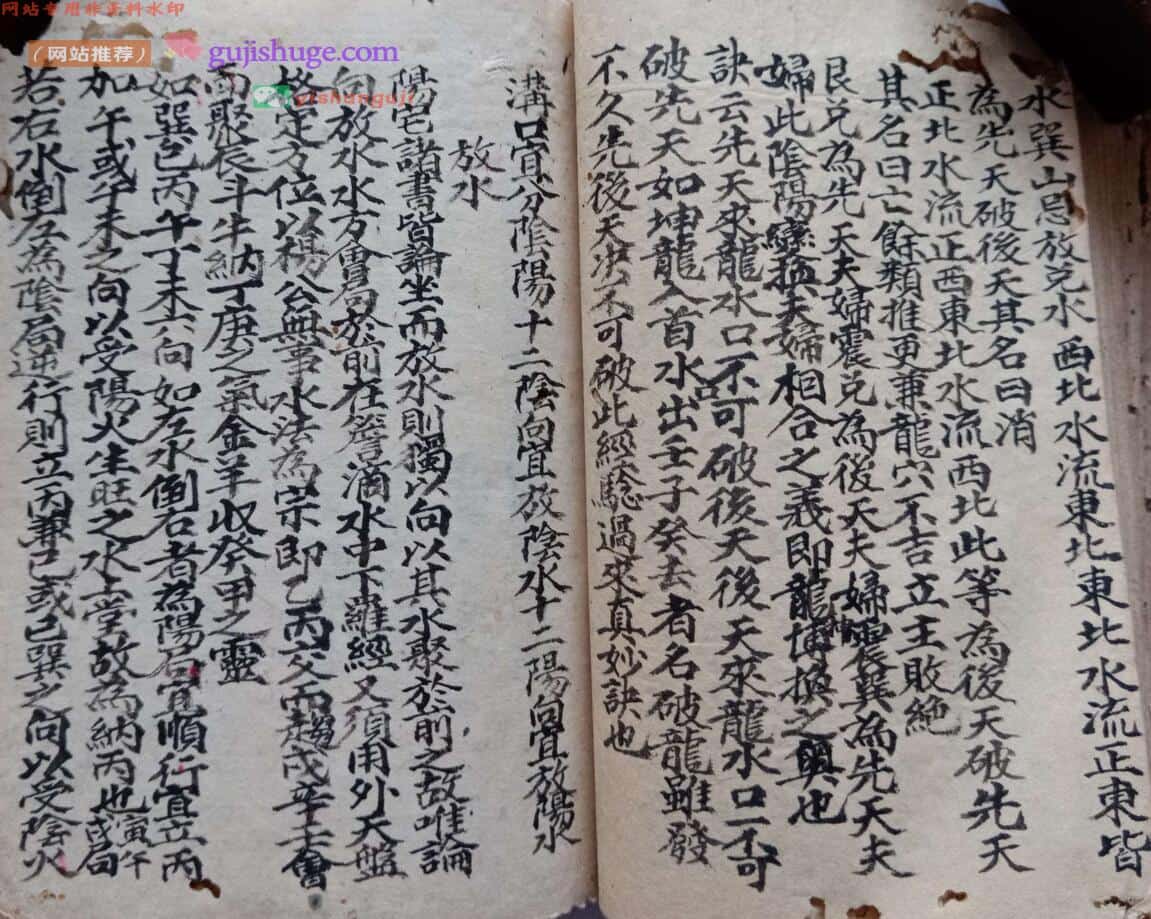 网站专用非资料水印
（网站推荐）
gujishuge.com
yishunguji
水巽山忌放兌水西北水流東北東北水流正東皆
為先天破後天其名曰消
正北水流正西東北水流西北此等為後天破先天
其名曰亡餘類推更兼龍穴不吉立主敗絶
艮兌為先天夫婦震兌為後天夫婦震巽為先天夫
婦此陰陽變換夫婦相合之義即龍神博換之與也
訣云先天來龍水口不可破後天後天來龍水口不可
破先天如坤龍入首水出壬子癸去者名破龍雖發
不久先後天决不可破此經驗過來真妙訣也
溝口宜分陰陽十二陰向宜放陰水十二陽向宜放陽水
放水
陽宅諸書皆論坐而放水則獨以向以其水聚於前之故唯論
向放水水方會局於前在簷滴水中下羅經又須用外天盤
格定方位以楊公無事水法為宗即乙丙交而趨戌辛壬會
而聚辰斗牛納丁庚之氣金羊收癸甲之靈
如巽巳丙午丁未六向如左水倒右者為陽局宜順行宜立丙
加午或午未之向以受陽火生旺之水上堂故為納丙也寅午戌局
若右水倒左為陰局逆行則立丙兼巳或巳巽之向以受陰火